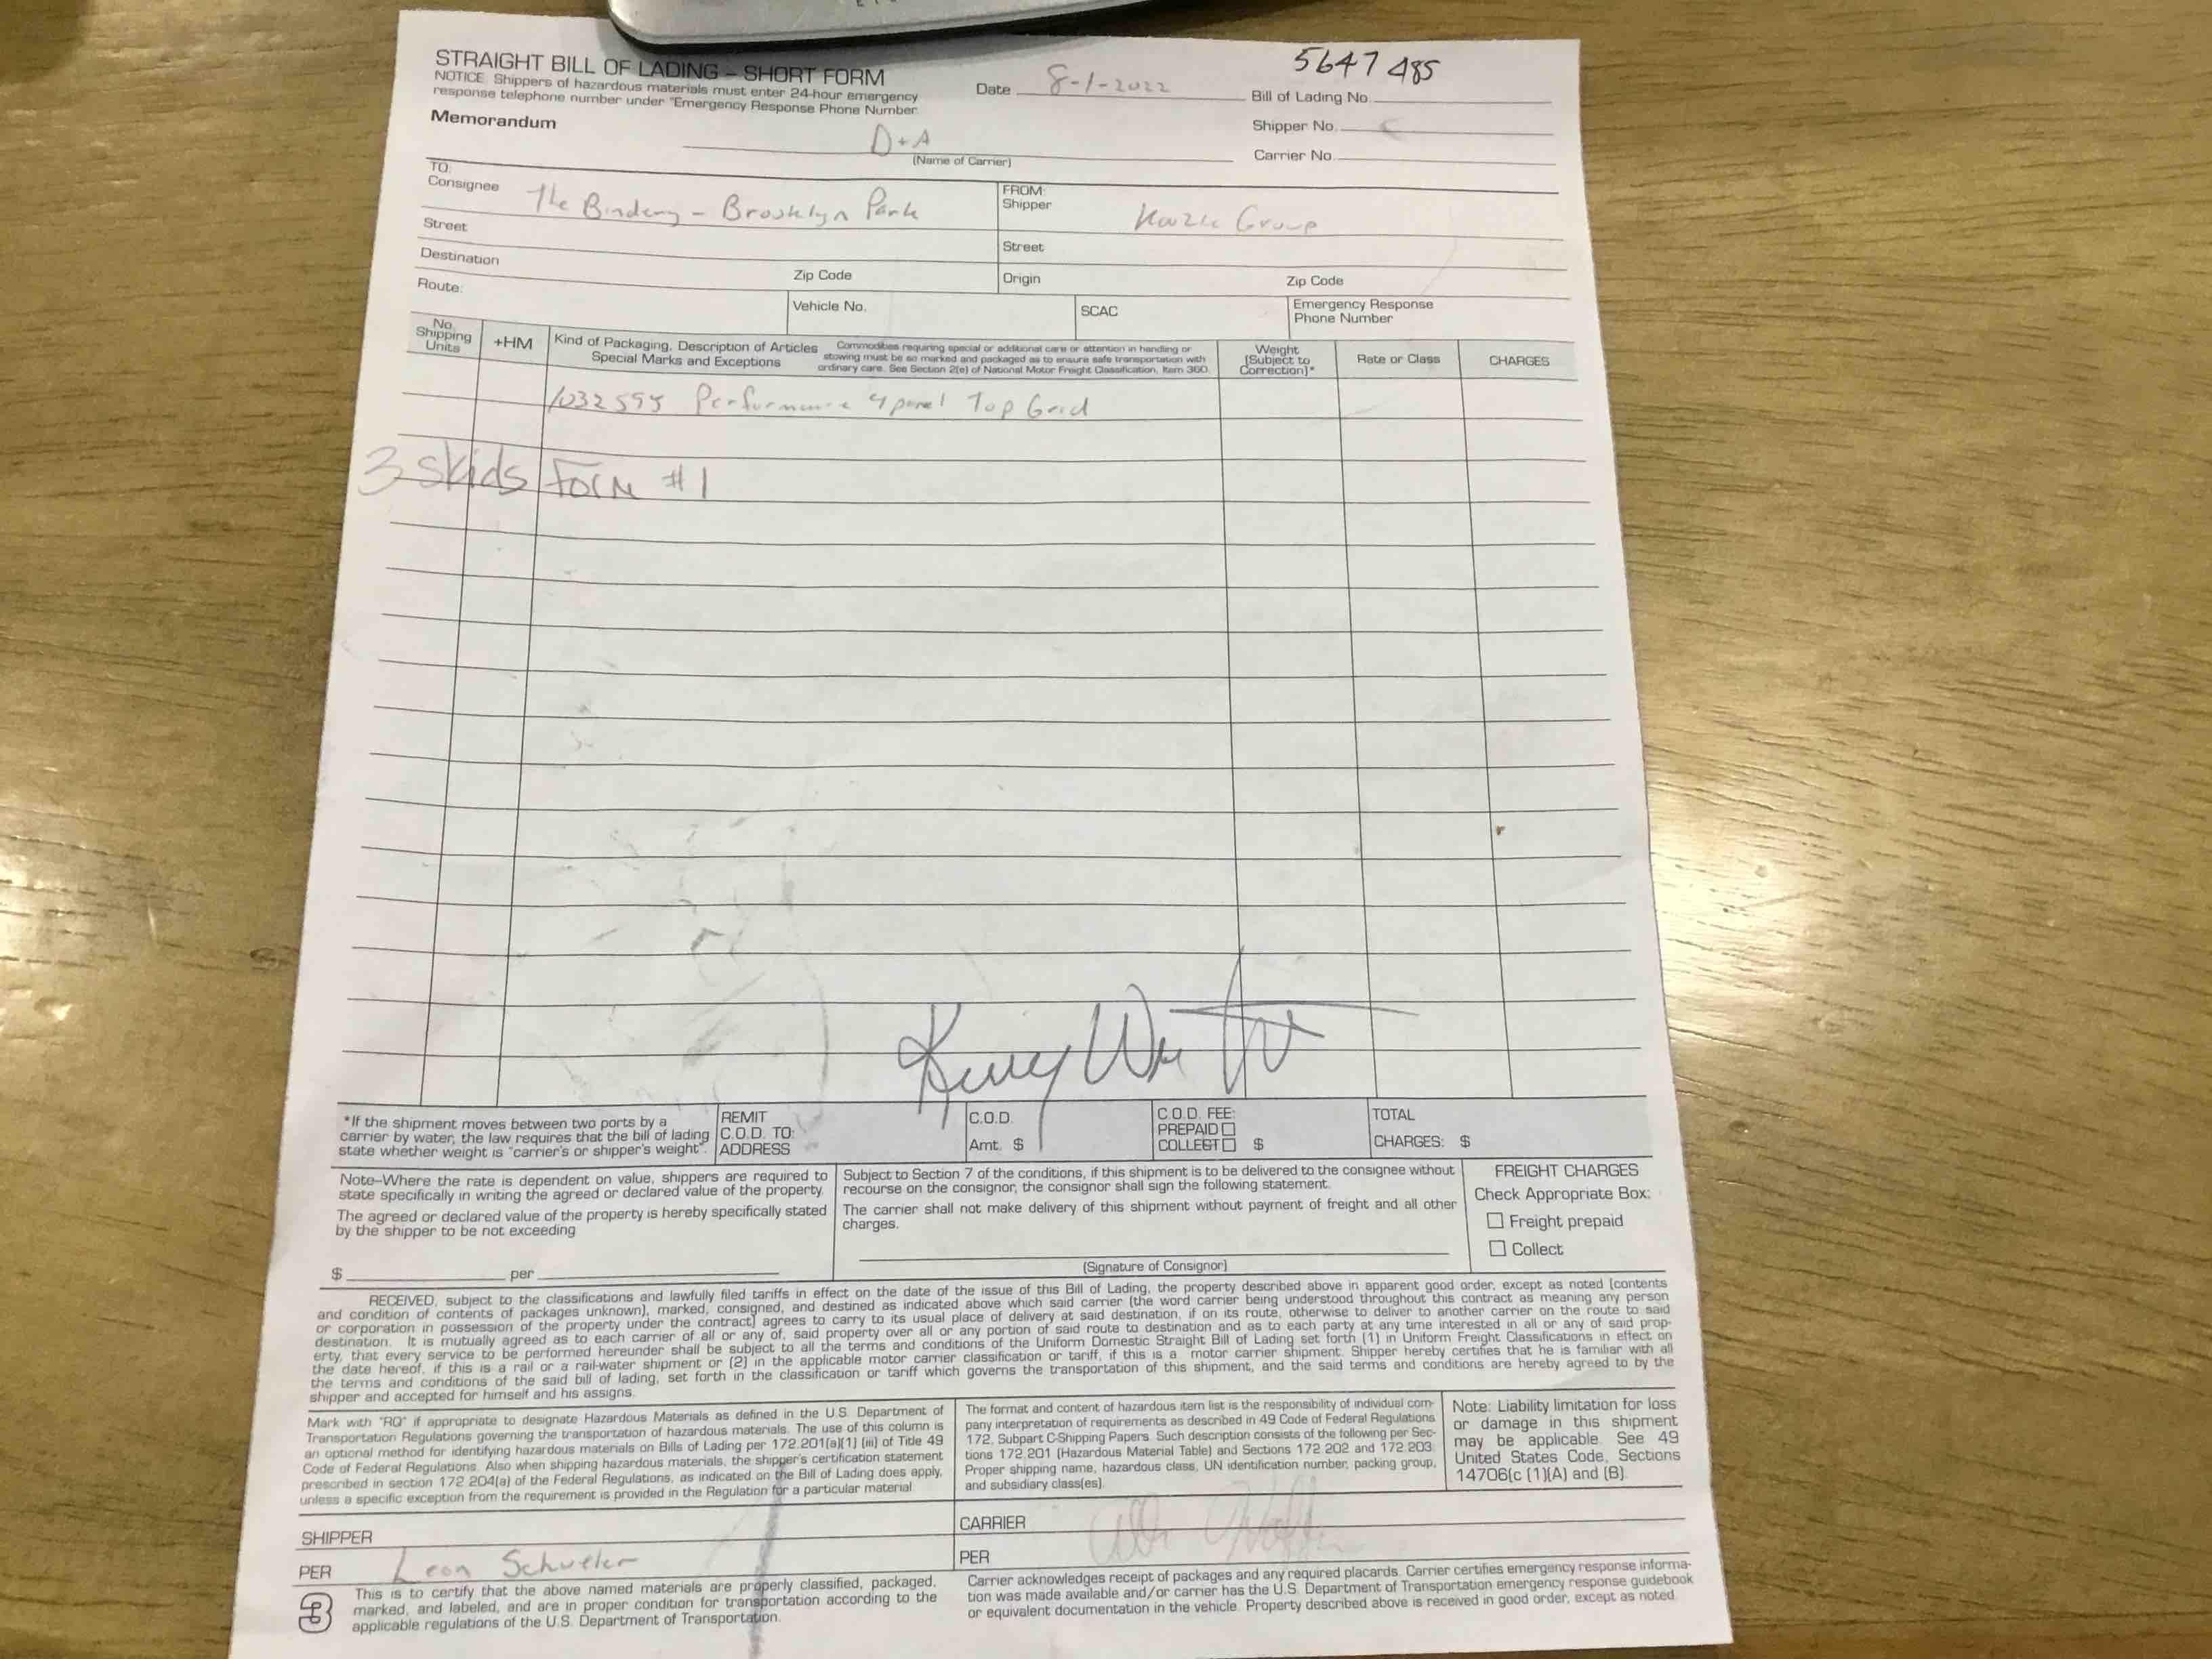 STRAIGHT BILL OF LADING – SHORT FORM
NOTICE: Shippers of hazardous materials must enter 24-hour emergency
response telephone number under "Emergency Response Phone Number.
Memorandum
Date 8-1-2022
5647485
Bill of Lading No.
Shipper No.
Carrier No.
D+A
(Name of Carrier)
TO:
Consignee The Bindery - Brooklyn Park
Street
Destination
Zip Code
FROM:
Shipper Group
Street
Origin
Zip Code
Route:
Vehicle No.
SCAC
Emergency Response
Phone Number
No.
Shipping
Units
+HM
Kind of Packaging, Description of Articles
Special Marks and Exceptions
Commodities requiring special or additional care or attention in handling or
stowing must be so marked and packaged as to ensure safe transportation with
ordinary care. See Section 2(e) of National Motor Freight Classification, Item 360.
Weight
(Subject to
Correction)*
Rate or Class
CHARGES
1032595 Performance 4 panel Top Grid
3 skids Form #1
*If the shipment moves between two ports by a
carrier by water, the law requires that the bill of lading
state whether weight is "carrier's or shipper's weight".
REMIT
C.O.D. TO:
ADDRESS
C.O.D.
Amt. $
C.O.D. FEE:
PREPAID
COLLECT $
TOTAL
CHARGES: $
Note–Where the rate is dependent on value, shippers are required to
state specifically in writing the agreed or declared value of the property.
The agreed or declared value of the property is hereby specifically stated
by the shipper to be not exceeding
$ per
Subject to Section 7 of the conditions, if this shipment is to be delivered to the consignee without
recourse on the consignor, the consignor shall sign the following statement.
The carrier shall not make delivery of this shipment without payment of freight and all other
charges.
(Signature of Consignor)
FREIGHT CHARGES
Check Appropriate Box:
Freight prepaid
Collect
RECEIVED, subject to the classifications and lawfully filed tariffs in effect on the date of the issue of this Bill of Lading, the property described above in apparent good order, except as noted (contents
and condition of contents of packages unknown), marked, consigned, and destined as indicated above which said carrier (the word carrier being understood throughout this contract as meaning any person
or corporation in possession of the property under the contract) agrees to carry to its usual place of delivery at said destination, if on its route, otherwise to deliver to another carrier on the route to said
destination. It is mutually agreed as to each carrier of all or any of, said property over all or any portion of said route to destination and as to each party at any time interested in all or any of said prop-
erty, that every service to be performed hereunder shall be subject to all the terms and conditions of the Uniform Domestic Straight Bill of Lading set forth (1) in Uniform Freight Classifications in effect on
the date hereof, if this is a rail or a rail-water shipment or (2) in the applicable motor carrier classification or tariff, if this is a motor carrier shipment. Shipper hereby certifies that he is familiar with all
the terms and conditions of the said bill of lading, set forth in the classification or tariff which governs the transportation of this shipment, and the said terms and conditions are hereby agreed to by the
shipper and accepted for himself and his assigns.
Mark with "RQ" if appropriate to designate Hazardous Materials as defined in the U.S. Department of
Transportation Regulations governing the transportation of hazardous materials. The use of this column is
an optional method for identifying hazardous materials on Bills of Lading per 172.201(a)(1) (iii) of Title 49
Code of Federal Regulations. Also when shipping hazardous materials, the shipper's certification statement
prescribed in section 172.204(a) of the Federal Regulations, as indicated on the Bill of Lading does apply,
unless a specific exception from the requirement is provided in the Regulation for a particular material.
The format and content of hazardous item list is the responsibility of individual com-
pany interpretation of requirements as described in 49 Code of Federal Regulations
172, Subpart C-Shipping Papers. Such description consists of the following per Sec-
tions 172.201 (Hazardous Material Table) and Sections 172.202 and 172.203.
Proper shipping name, hazardous class, UN identification number, packing group,
and subsidiary class(es).
Note: Liability limitation for loss
or damage in this shipment
may be applicable. See 49
United States Code, Sections
14706(c (1)(A) and (B).
SHIPPER
PER Leon Schueler
CARRIER
PER
3
This is to certify that the above named materials are properly classified, packaged,
marked, and labeled, and are in proper condition for transportation according to the
applicable regulations of the U.S. Department of Transportation.
Carrier acknowledges receipt of packages and any required placards. Carrier certifies emergency response informa-
tion was made available and/or carrier has the U.S. Department of Transportation emergency response guidebook
or equivalent documentation in the vehicle. Property described above is received in good order, except as noted.